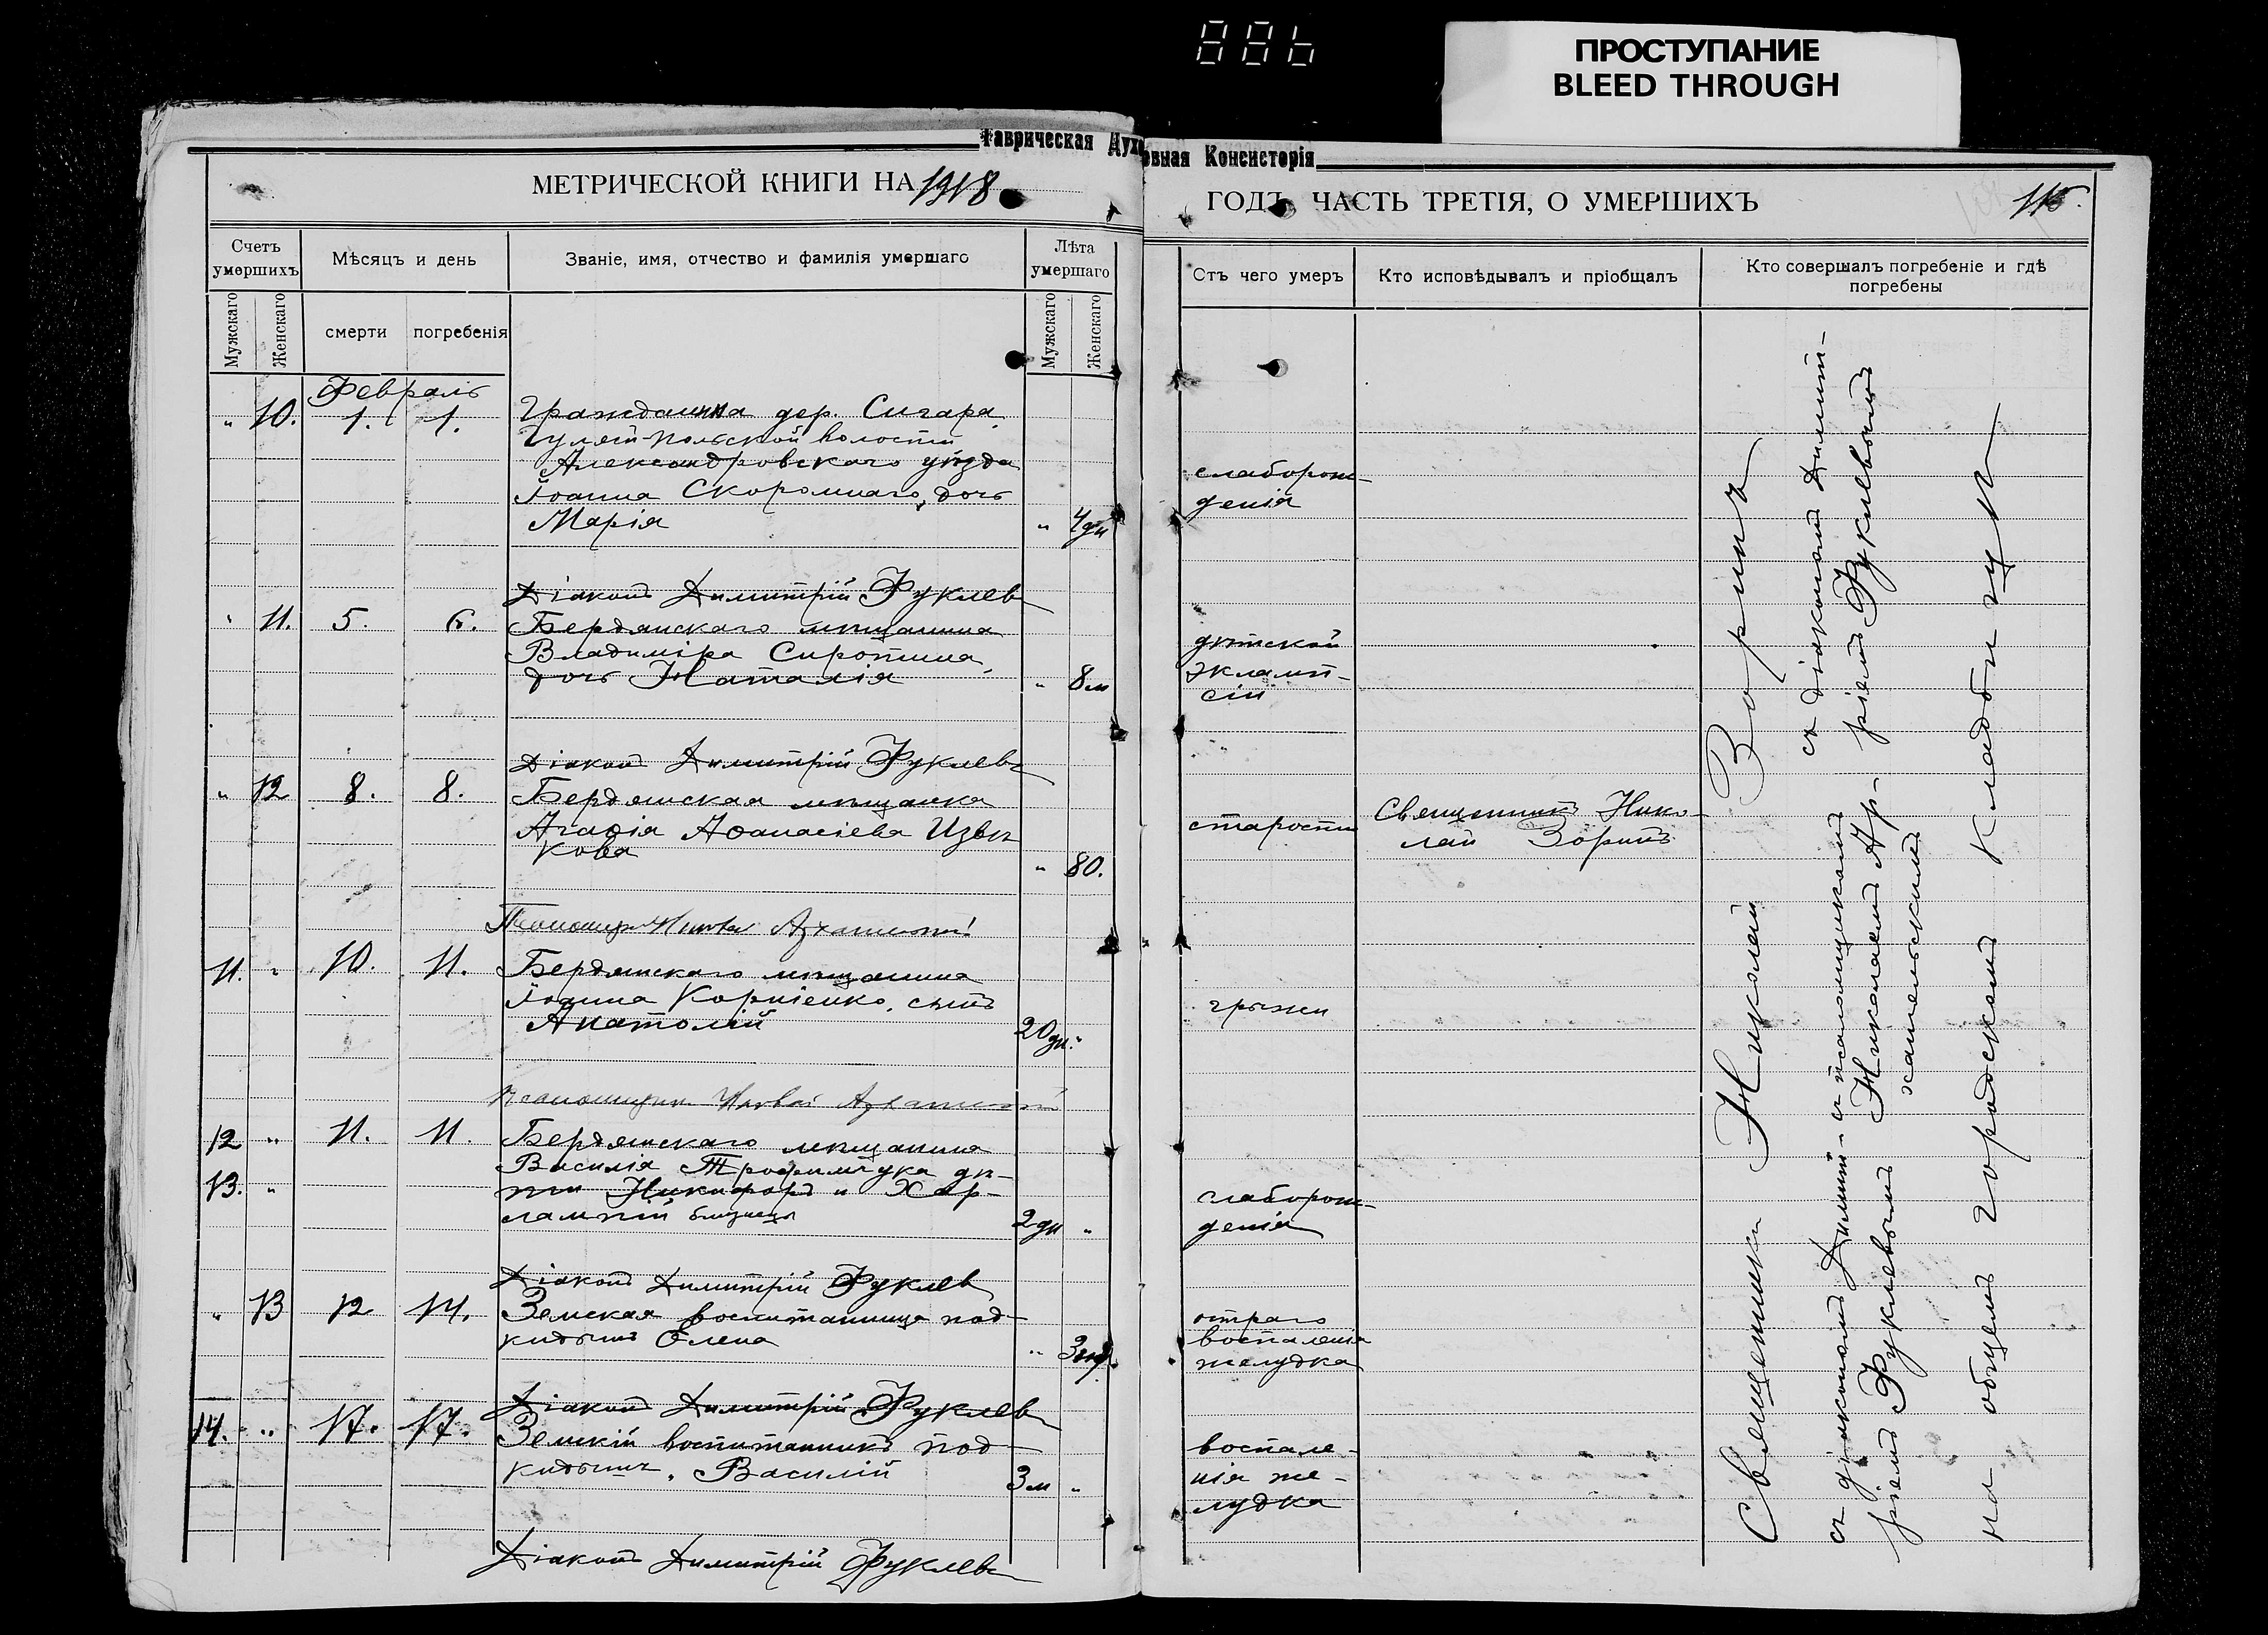 ПРОСТУПАНИЕ
BLEED THROUGH
Таврическая Духовная Консисторія
МЕТРИЧЕСКОЙ КНИГИ НА 1918
ГОДЪ, ЧАСТЬ ТРЕТІЯ, О УМЕРШИХЪ
115.
Счетъ умершихъ
Мѣсяцъ и день
Званіе, имя, отчество и фамилія умершаго
Лѣта умершаго
Отъ чего умеръ
Кто исповѣдывалъ и пріобщалъ
Кто совершалъ погребеніе и гдѣ погребены
Мужскаго
Женскаго
смерти
погребенія
Мужскаго
Женскаго
Февраль
" 10. 1. 1. Гражданина дер. Сигара,
Гуляй-Польской волости
Александровскаго уѣзда
Іоанна Скоромнаго, дочь
Марія " 4 дн
слаборож-
денія
Діаконъ Димитрій Фуклевъ
" 11. 5. 6. Бердянскаго мѣщанина
Владиміра Сиротина,
дочь Наталія " 8 м
дѣтской
эклямп-
сіи
Діаконъ Димитрій Фуклевъ
" 12 8. 8. Бердянская мѣщанка
Агафія Афанасіева Извѣ
кова " 80.
старости
Священникъ Нико-
лай Зоринъ
Псаломщикъ
11. " 10. 11. Бердянскаго мѣщанина
Іоанна Корніенко, сынъ
Анатолій 20 дн. "
грыжи
Псаломщикъ
12 " 11. 11. Бердянскаго мѣщанина
Василія Трофимчука дѣ-
13. " ти Никифоръ и Хар-
лампій близнецы 2 дн "
слаборож-
денія
Діаконъ Димитрій Фуклевъ
" 13 12 14. Земская воспитанница под-
кидышъ Елена "
остраго
воспаленія
желудка
Діаконъ Димитрій Фуклевъ
14. " 17. 17. Земскій воспитанникъ под
кидышъ, Василій 3 м "
воспале-
нія же-
лудка
Діаконъ Димитрій Фуклевъ
Священникъ Николай Зоринъ
съ діакономъ Димит-
ріемъ Фуклевымъ
съ псаломщикомъ
Николаемъ Ар-
хангельскимъ
съ діакономъ Димит-
ріемъ Фуклевымъ
на общемъ городскомъ кладбищѣ